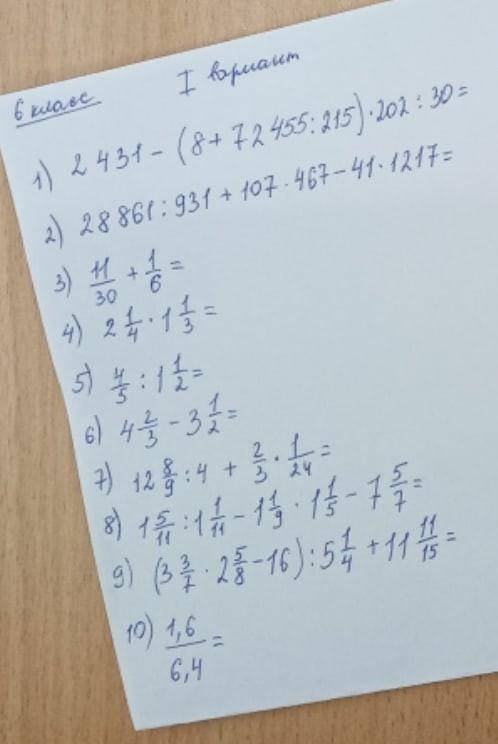 6 класс
I вариант
1) 2 431 - (8 + 72 455 : 215) · 202 : 30 =
2) 28 861 : 931 + 107 · 467 - 41 · 1217 =
3) 11/30 + 1/6 =
4) 2 1/4 · 1 1/3 =
5) 4/5 : 1 1/2 =
6) 4 2/3 - 3 1/2 =
7) 12 8/9 : 4 + 2/3 · 1/24 =
8) 1 5/11 : 1 1/11 - 1 1/9 · 1 1/5 - 7 5/7 =
9) (3 3/7 · 2 5/8 - 16) : 5 1/4 + 11 11/15 =
10) 1,6/6,4 =